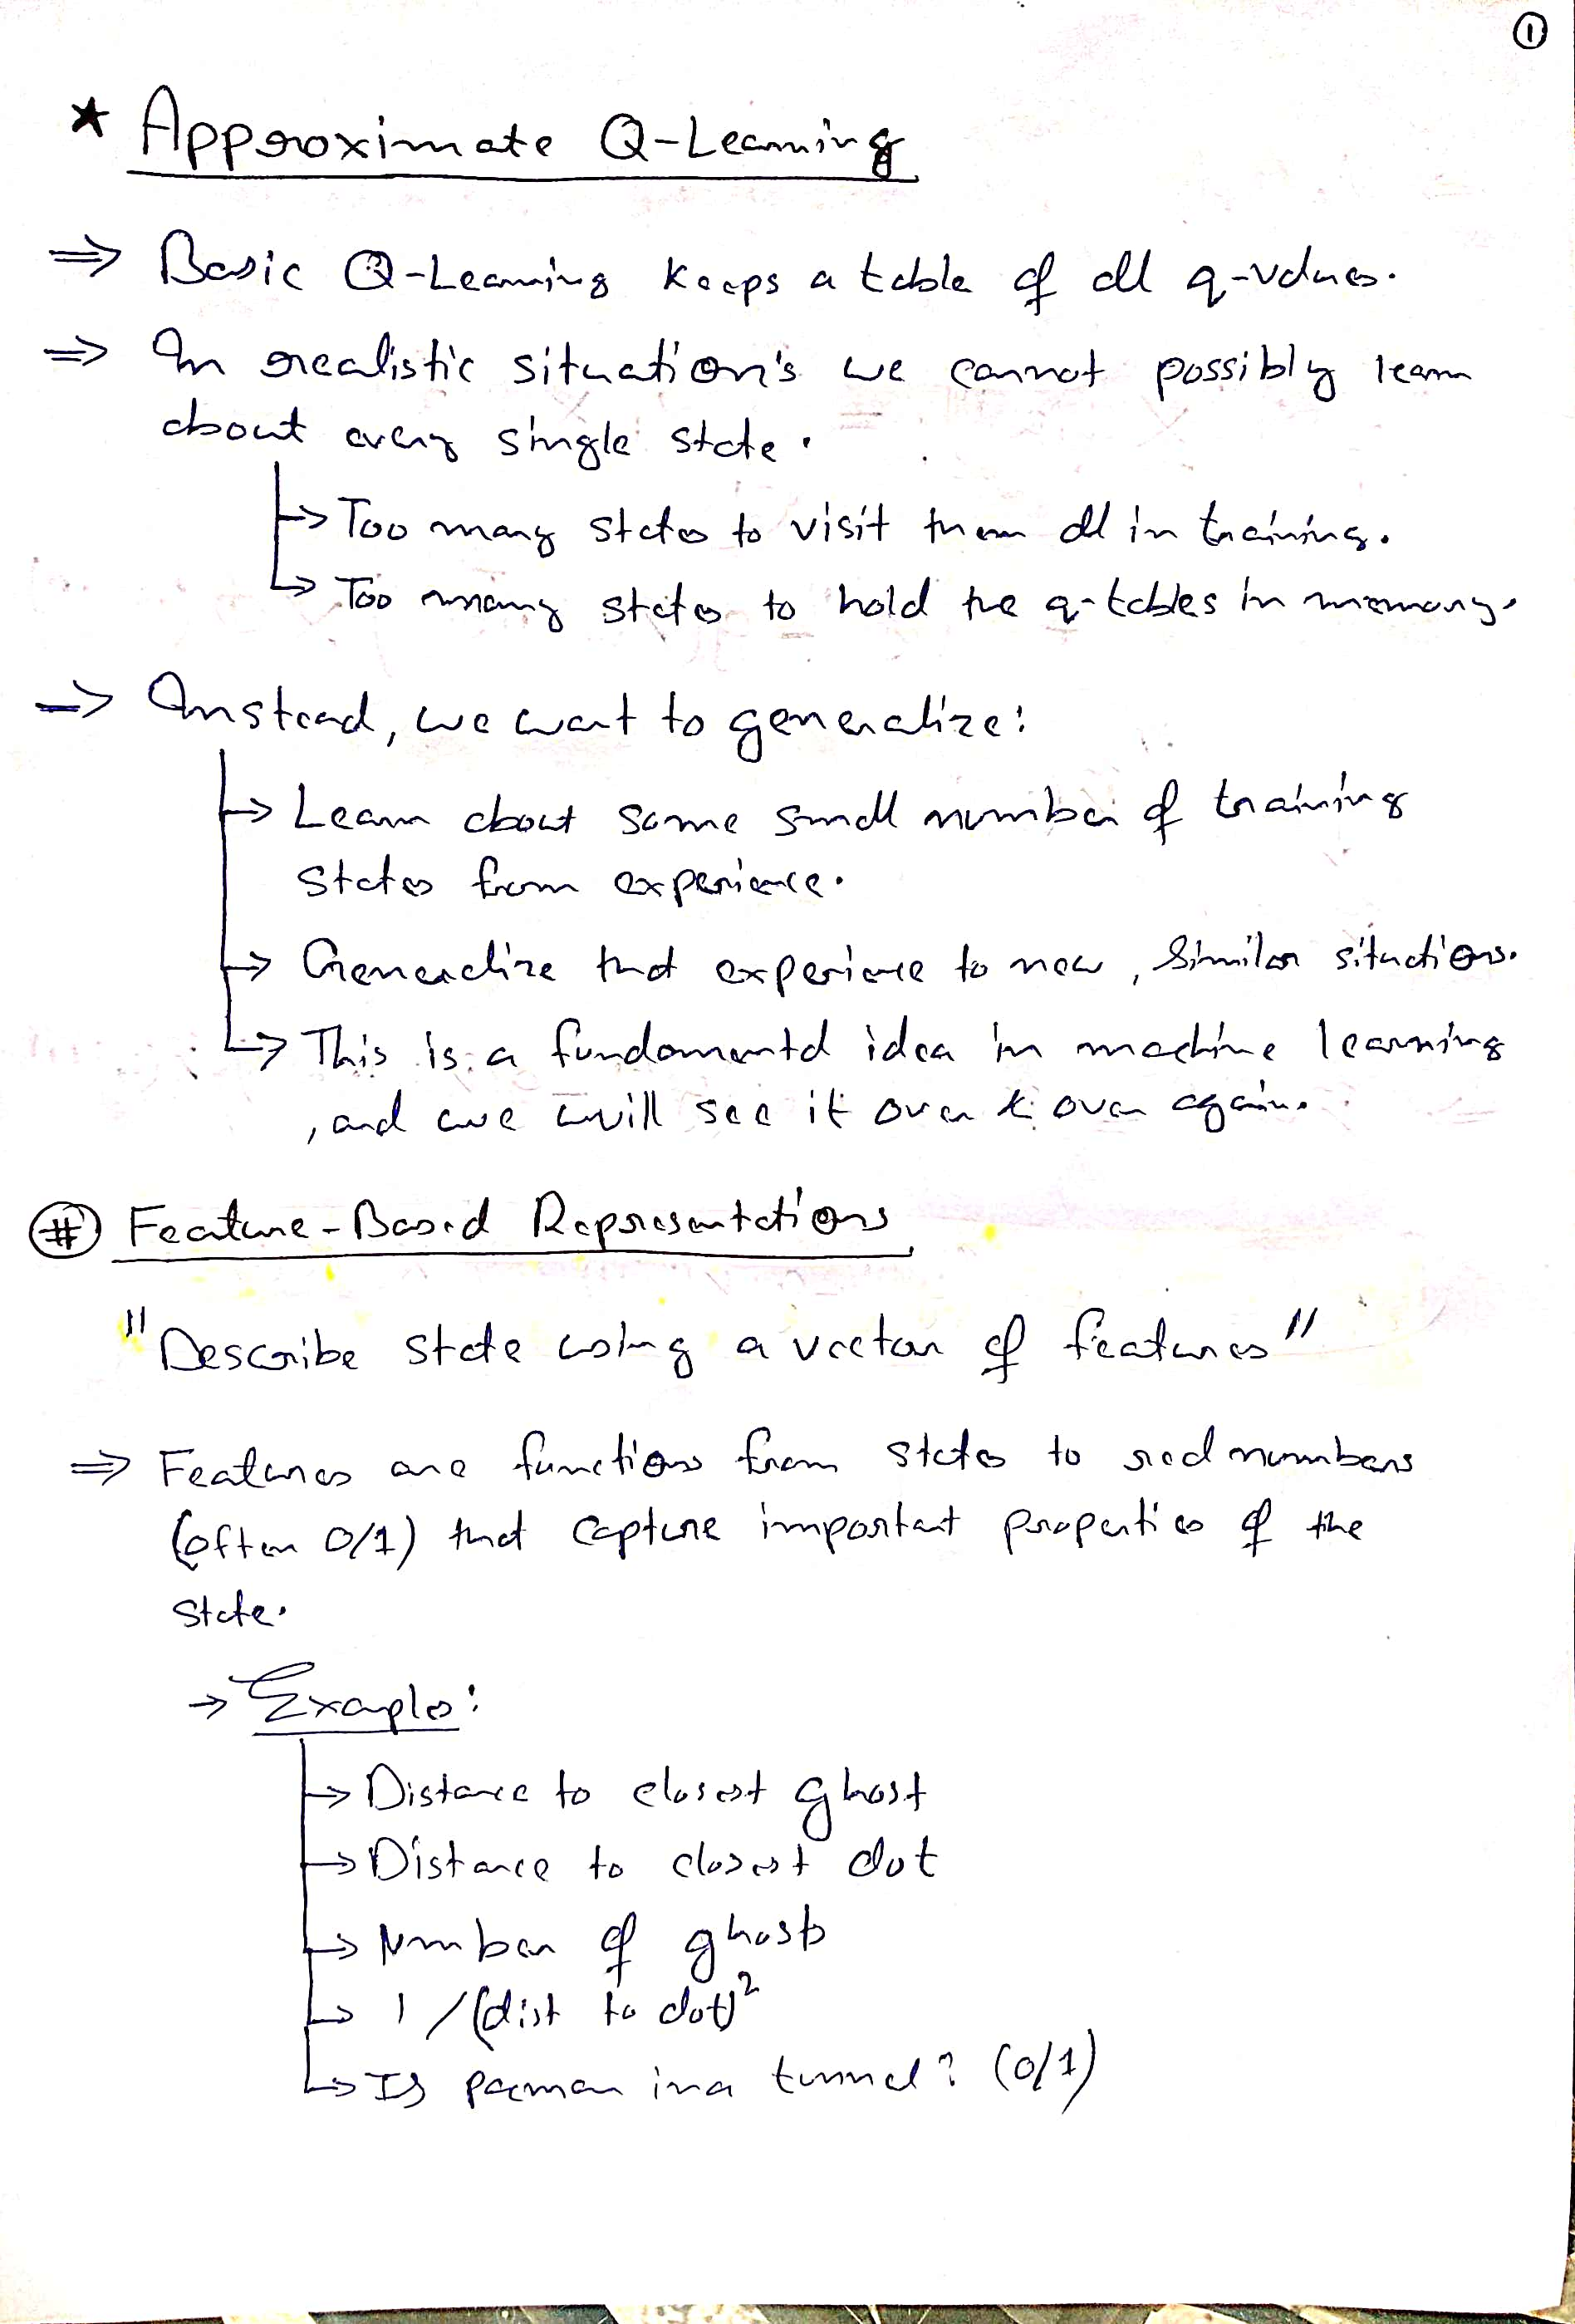 ①
* Approximate Q-Learning
⇒ Basic Q-Learning keeps a table of all q-values.
⇒ In realistic situation's we cannot possibly learn
about every single state.
↳ Too many states to visit them all in training.
↳ Too many states to hold the q-tables in memory.
⇒ Instead, we want to generalize:
↳ Learn about some small number of training
states from experience.
↳ Generalize that experience to new, similar situations.
↳ This is a fundamental idea in machine learning
, and we will see it over & over again.
# Feature-Based Representations
"Describe state using a vector of features"
⇒ Features are functions from states to real numbers
(often 0/1) that capture important properties of the
state.
→ Examples:
↳ Distance to closest ghost
↳ Distance to closest dot
↳ Number of ghosts
↳ 1/(dist to dot)²
↳ Is pacman in a tunnel? (0/1)